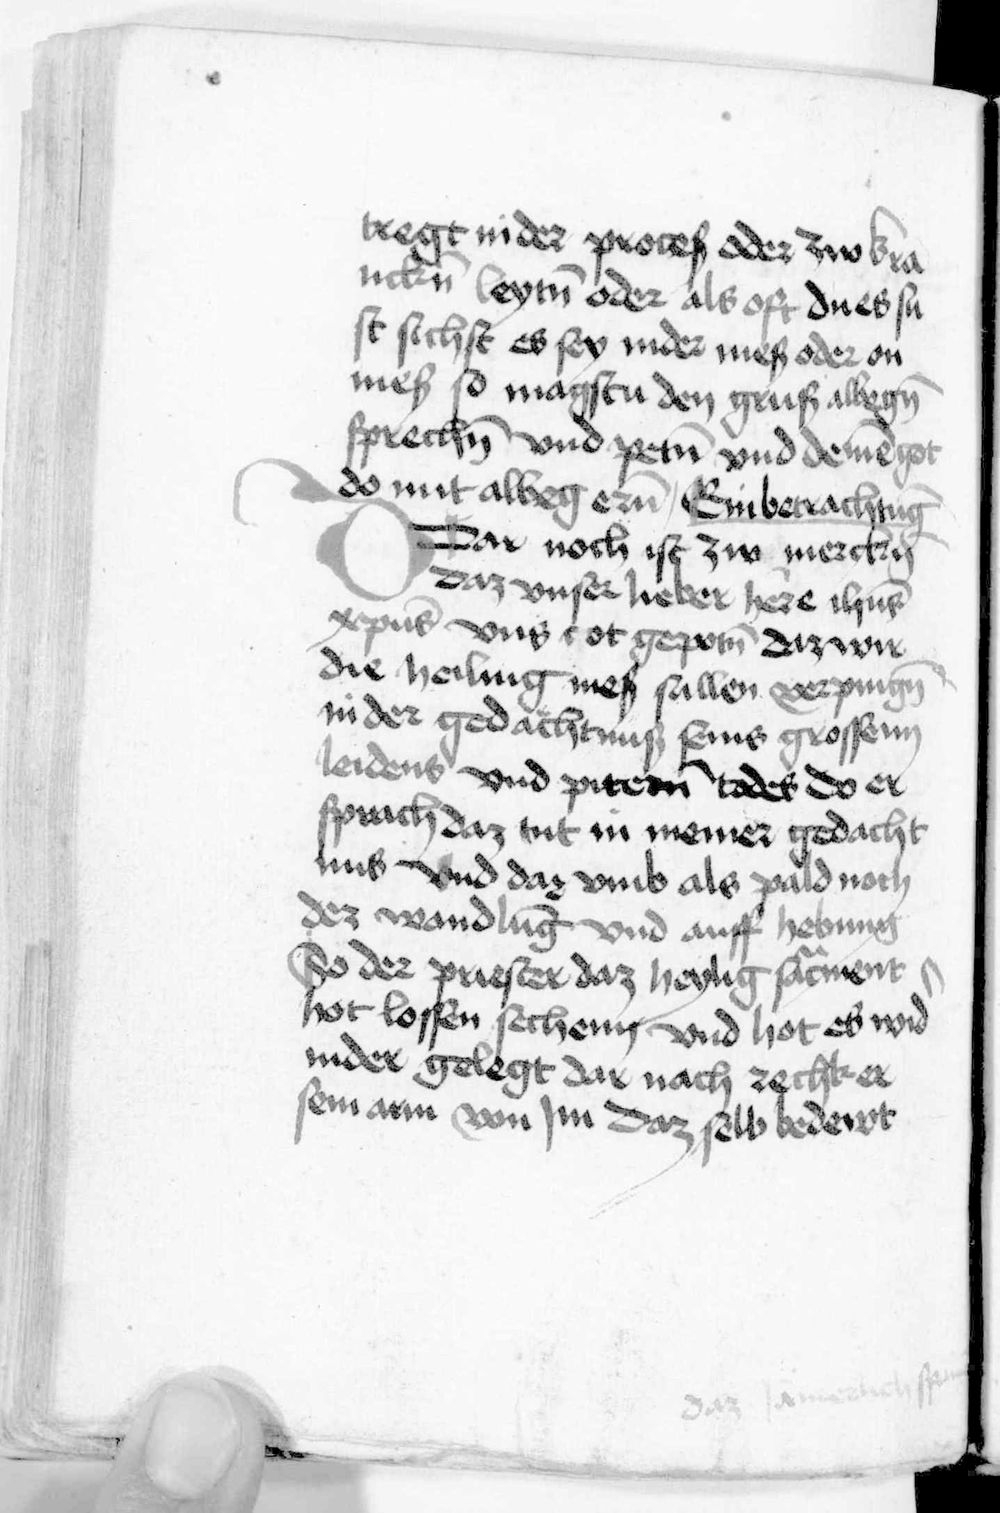 tregt in der proceß oder zw kra
nckn̄ leytn̄ oder als oft du es su
st sichst es sey in der meß oder on
meß so magstu den gruß albegn̄
sprechn̄ vnd petn̄ vnd deinē got
do mit albeg ern̄ Ein betrachtūg
Dar noch ist zw merckn̄
daz vnser lieber here ihūs
xpūs vns tot gepotn̄ daz wir
die heiling meß sullen verpringn̄
in der gedachtnuß seins grossenn
leidens vnd pitern̄ todes do er
sprach daz tut in meiner gedacht
nus vnd dar vmb als pald noch
dez wandlūg vnd auff hebung
So der priester daz heylig sacment
hot lossen sechenn vnd hot es wid
nider gelegt dar nach recht er
sein arm von Im Daz selb bedewt
daz Jamerlich